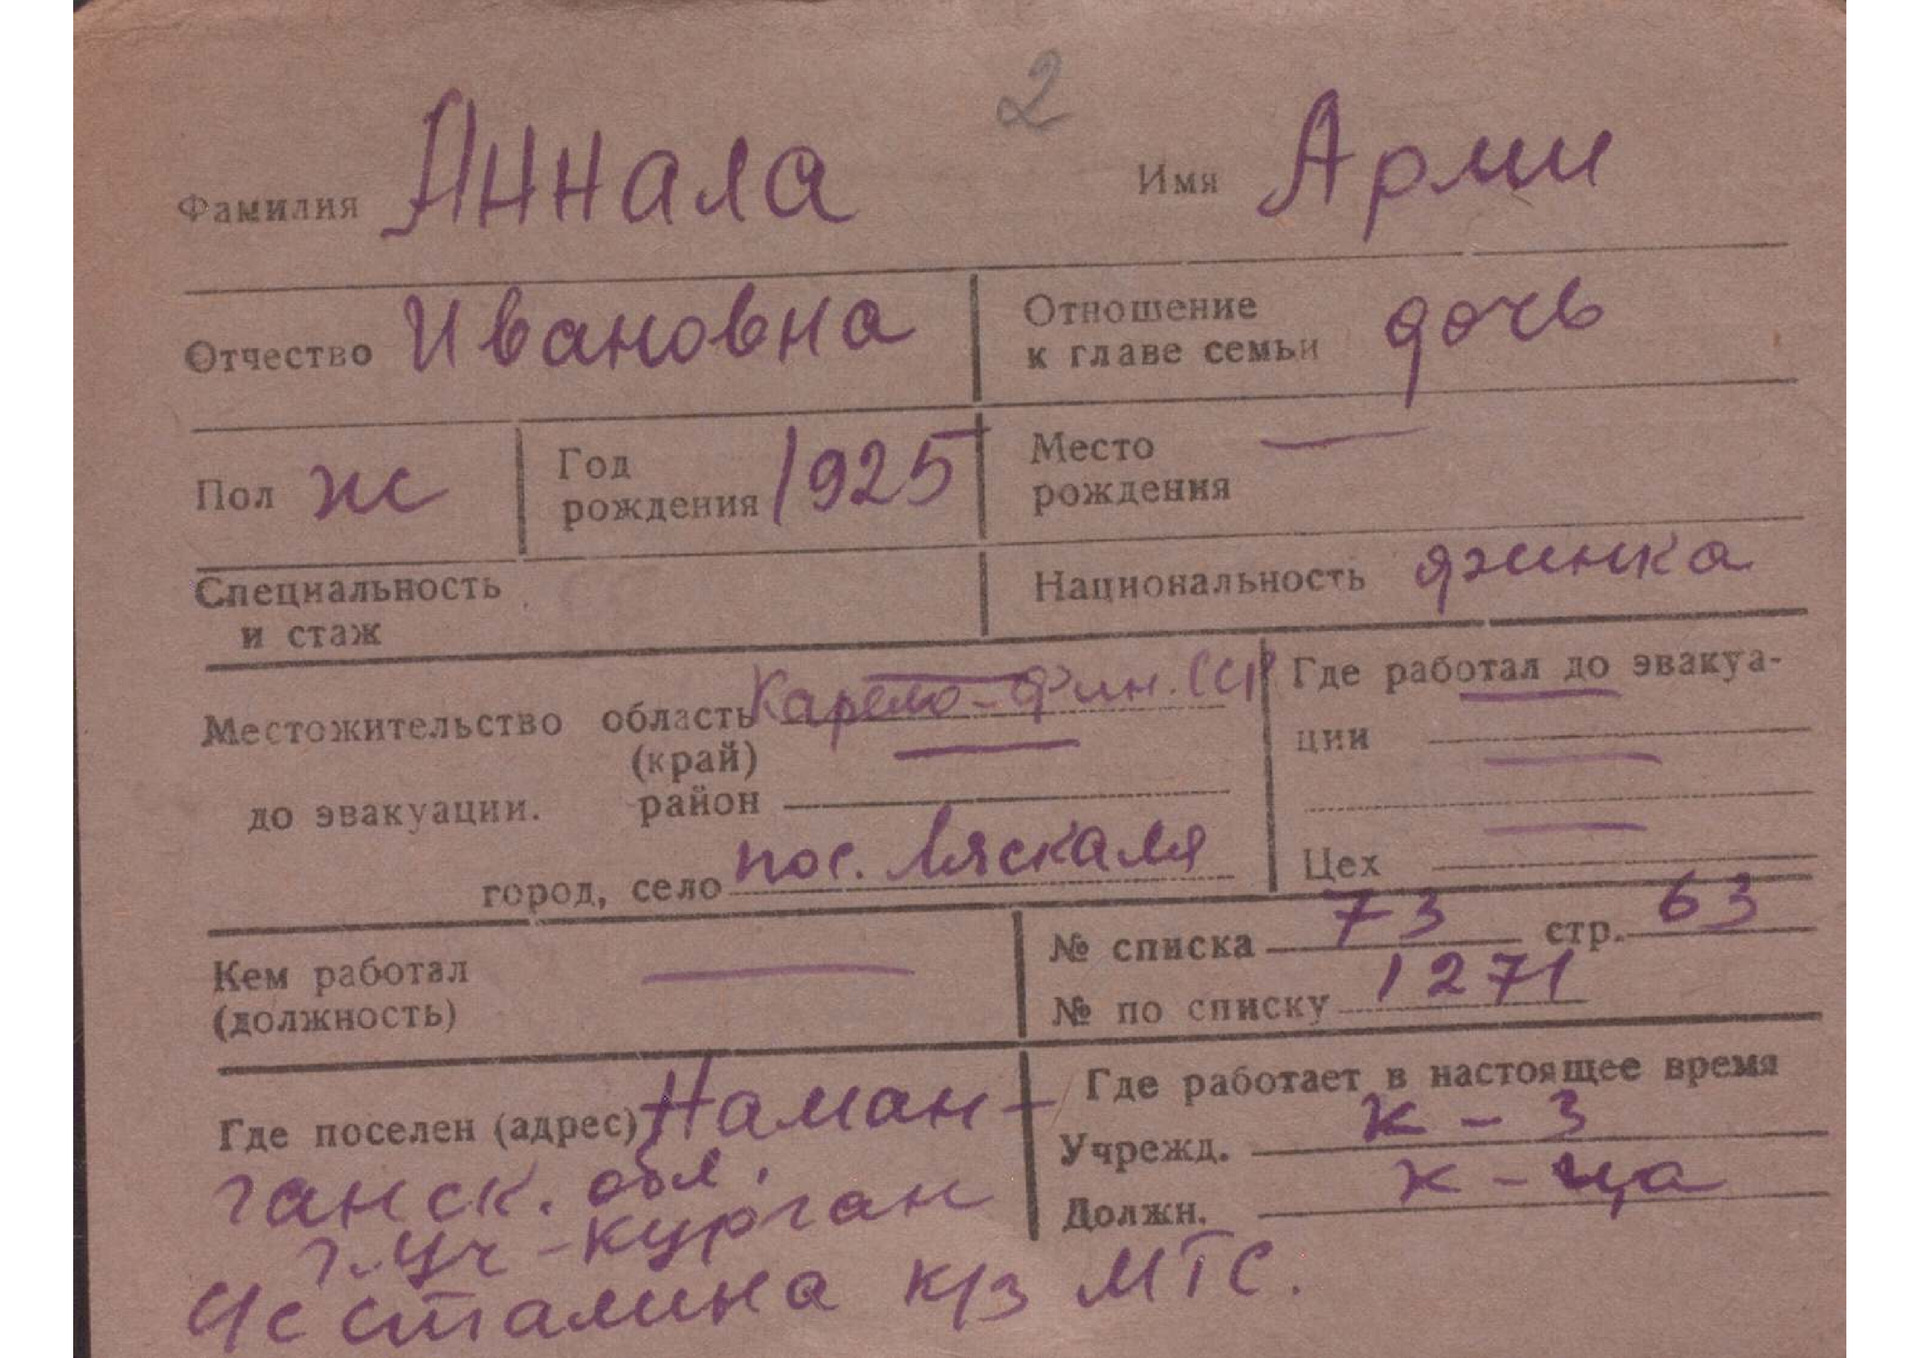 2
Фамилия Аннала Имя Арми
Отчество Ивановна Отношение к главе семьи дочь
Пол ж Год рождения 1925 Место рождения —
Специальность и стаж Национальность финка
Местожительство до эвакуации. область (край) Карело-Фин. ССР
район —
город, село пос. Ляскаля
Где работал до эвакуации —
Цех —
Кем работал (должность) —
№ списка 73 стр. 63
№ по списку 1271
Где поселен (адрес) Наман-
ганск. обл.
г. Уч-курган
Где работает в настоящее время
Учрежд. к-з
Должн. к-ца
Сталина к/з МТС.